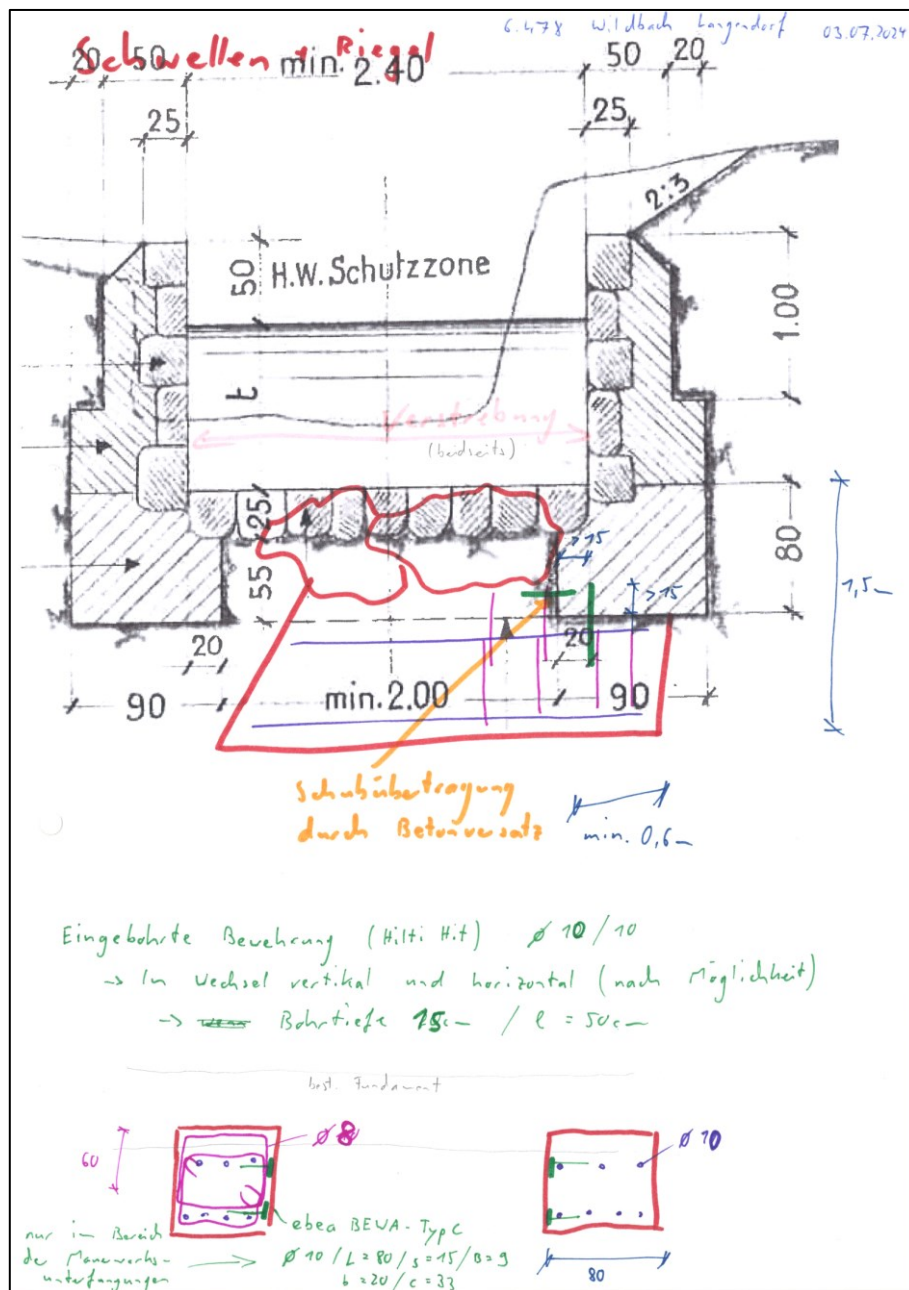 6.478 Wildbach Langendorf 03.07.2024
Schwellen + Riegel
20 50 min. 2.40 50 20
25 25
2:3
50 H.W. Schutzzone
1.00
t
Verstrebung
(beidseits)
25 > 15
80
55 > 15
1,5m
20 20
90 min. 2.00 90
Schubübertragung
durch Betonversatz
min. 0,6m
Eingebohrte Bewehrung (Hilti Hit) ø 10 / 10
→ In Wechsel vertikal und horizontal (nach Möglichkeit)
→ Bohrtiefe 15cm / l = 50cm
best. Fundament
ø 8 ø 10
60
ebea BEWA-Typ C
nur im Bereich
der Mauerwerks-
unterfangungen
ø 10 / L = 80 / s = 15 / B = 9
b = 20 / c = 33
80